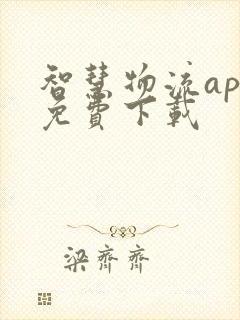 智慧物流ap
免費下載
梁齊齊